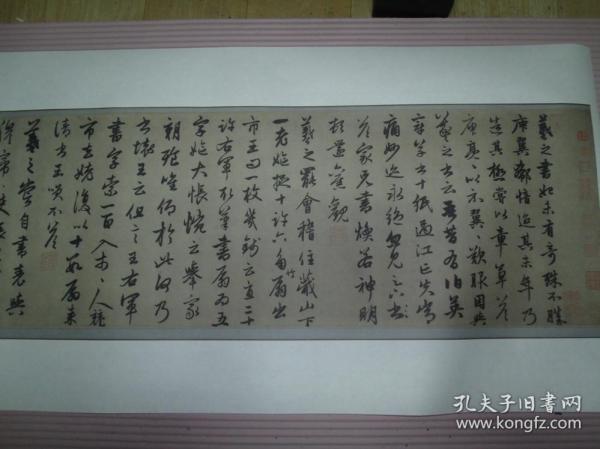 羲之書初未有奇殊不勝
庾翼郗愔迨其末年乃
造其極嘗以章草答
庾亮亮以示翼翼歎服因與
羲之書云吾昔有伯英
章草書十紙過江亡失常
痛妙迹永絕忽見足下
答家兄書煥若神明
頓還舊觀
羲之罷會稽住蕺山下
一老嫗捉十許六角竹扇出
市王曰一枚幾錢云直二十
許右軍取筆書扇扇為五
字嫗大悵惋云舉家
朝飧惟仰於此何乃
書壞王云但言王右軍
書字索一百入市市人競
市去嫗復以十數扇來
請書王笑不答
羲之嘗自書表與
穆帝
孔夫子旧书网
www.kongfz.com